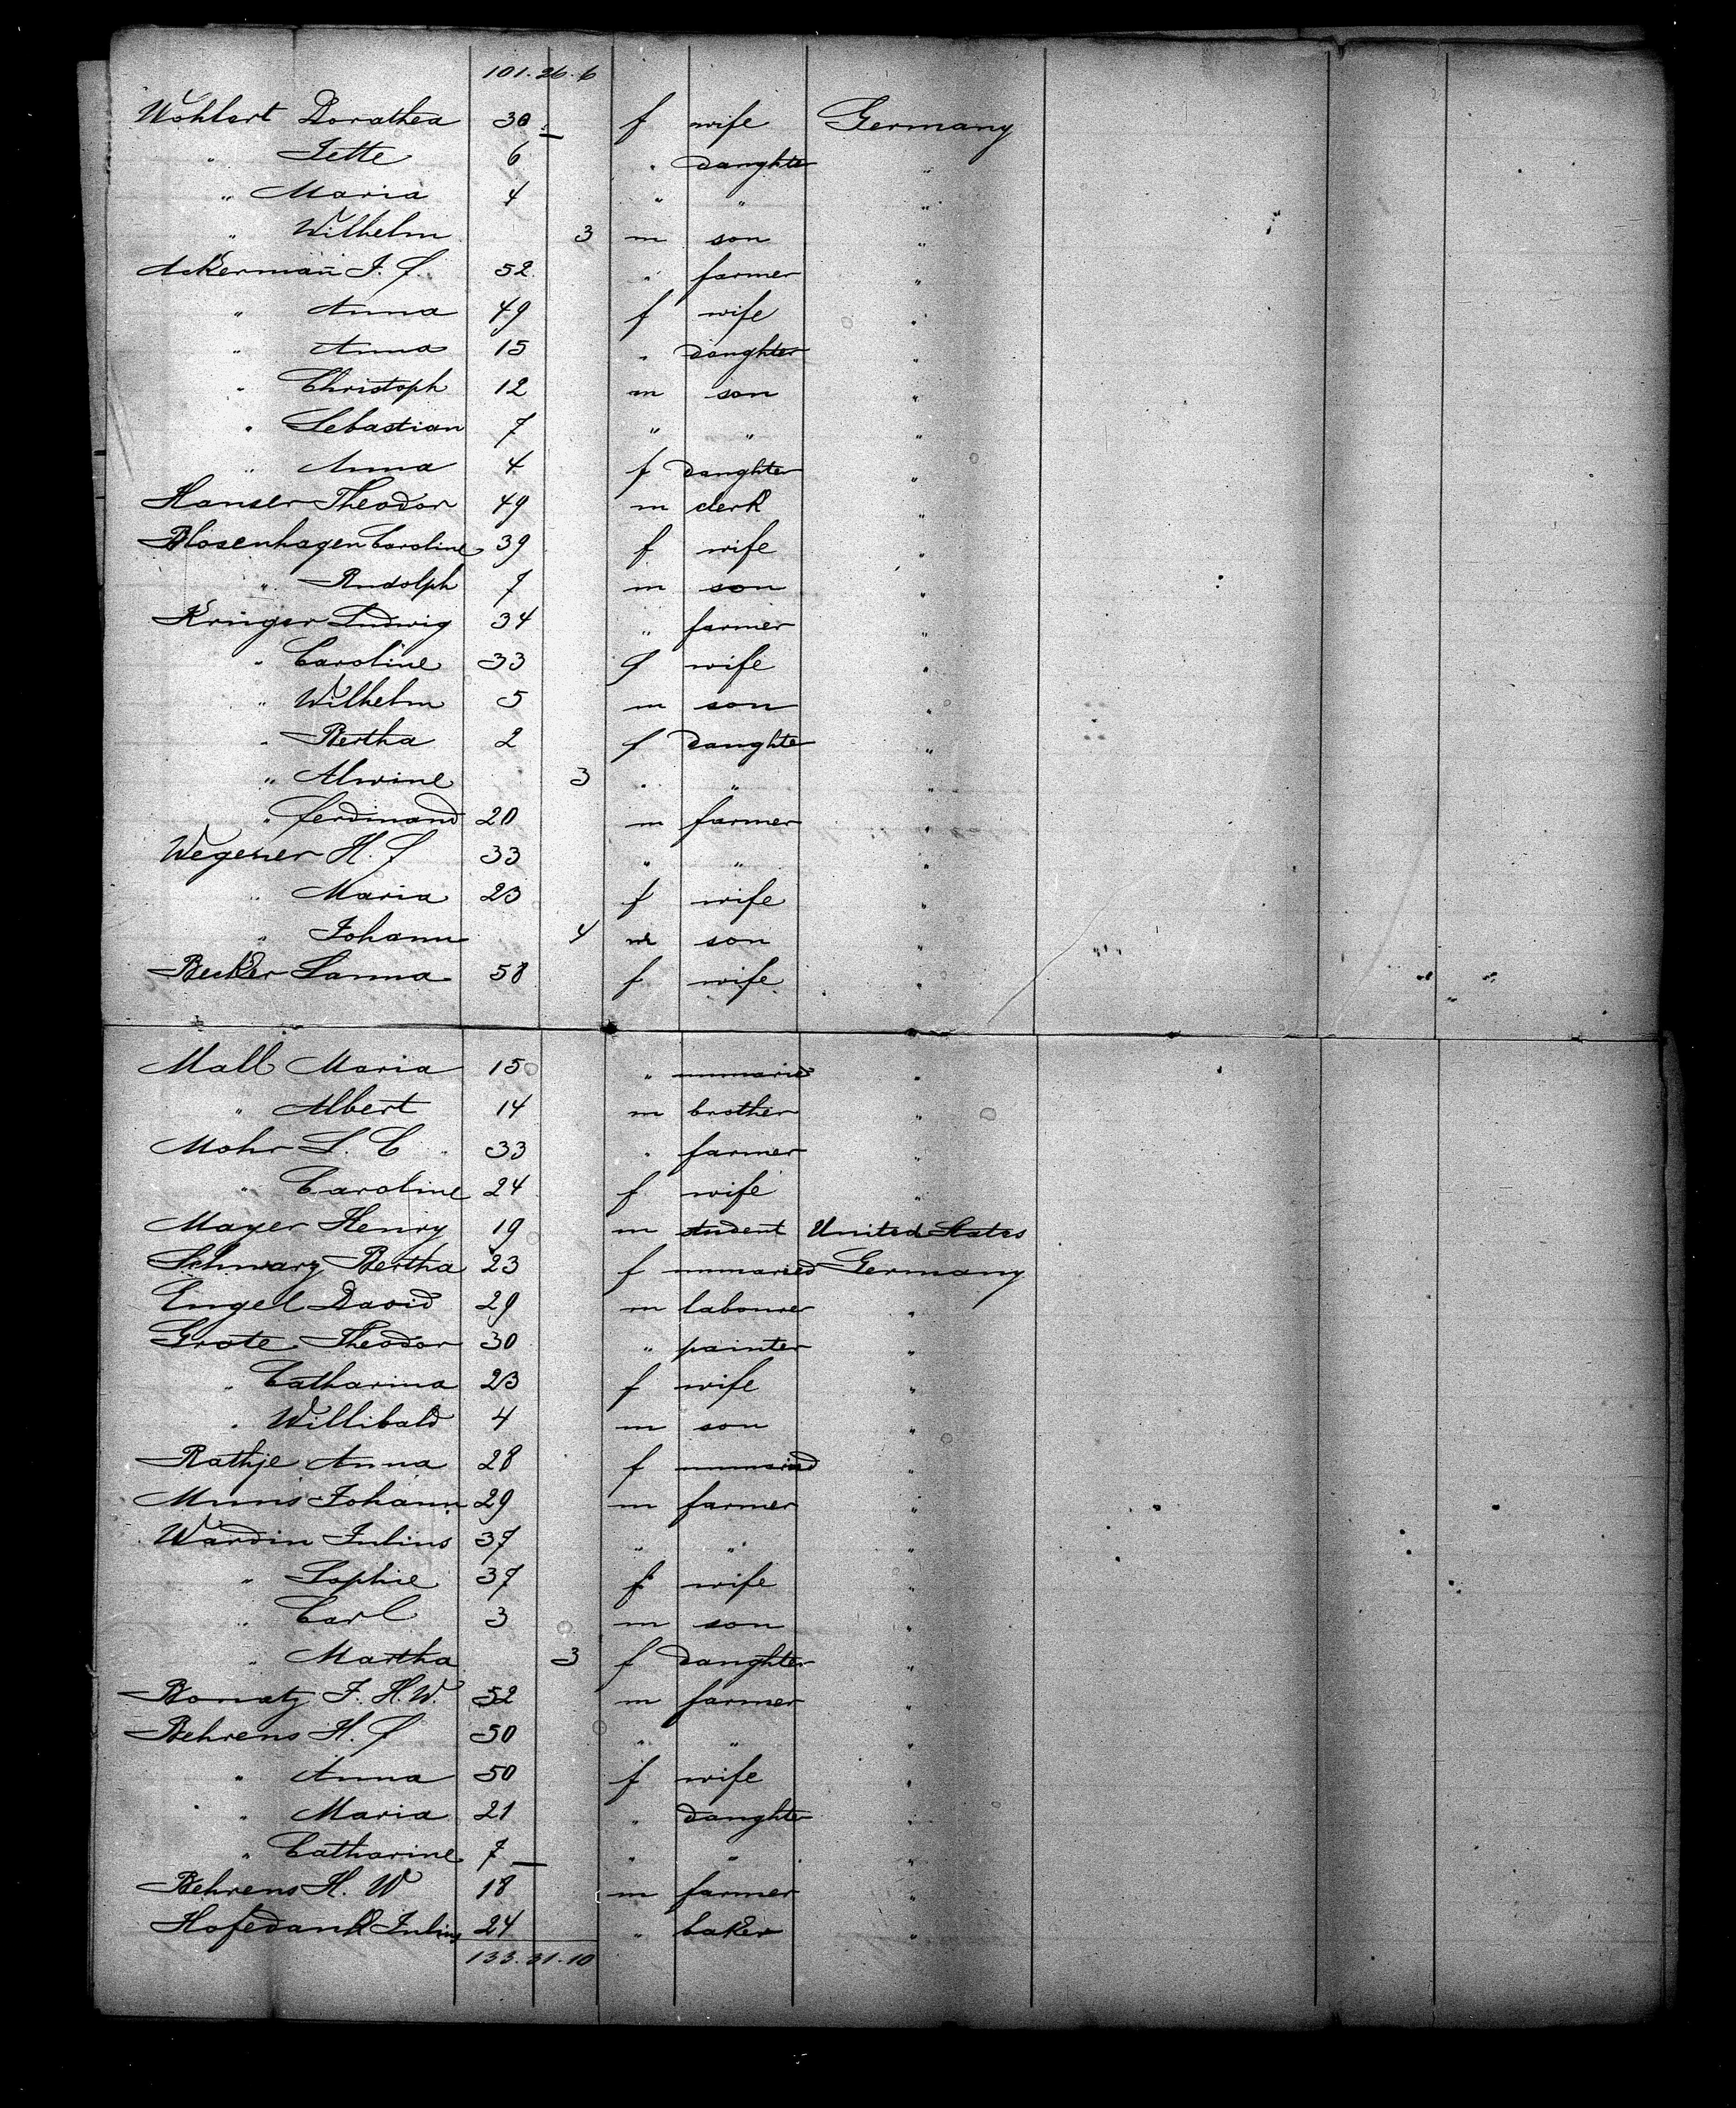 101. 26. 6
Wohlert Dorathea 30 f wife Germany
" Jette 6 " daughter "
" Maria 4 " " "
" Wilhelm 3 m son "
Ackermann J. f. 52 " farmer "
" Anna 49 f wife "
" Anna 15 " daughter "
" Christoph 12 m son "
" Sebastian 7 " " "
" Anna 4 f daughter "
Hanser Theodor 49 m clerk "
Blosenhagen Caroline 39 f wife "
" Rudolph 7 m son "
Kruger Ludwig 34 " farmer "
" Caroline 33 f wife "
" Wilhelm 5 m son "
" Bertha 2 f daughter "
" Alwine 3 " " "
" ferdinand 20 m farmer "
Wegener H. f 33 " " "
" Maria 23 f wife "
" Johann 4 m son "
Becker Sanna 58 f wife "
Mall Maria 15 " unmaried "
" Albert 14 m brother "
Mohr S. C 33 " farmer "
" Caroline 24 f wife "
Mayer Henry 19 m student United States
Schwarz Bertha 23 f unmaried Germany
Engel David 29 m labourer "
Grote Theodor 30 " painter "
" Catharina 23 f wife "
" Willibald 4 m son "
Rathje Anna 28 f unmaried "
Muns Johann 29 m farmer "
Wardin Julius 37 " " "
" Sophie 37 f wife "
" Carl 3 m son "
" Martha 3 f daughter "
Bonatz J. H. W. 52 m farmer "
Behrens H. f 50 " " "
" Anna 50 f wife "
" Maria 21 " daughter "
" Catharine 7 " " "
Behrens H. W 18 m farmer "
Hofedank Julius 24 " baker "
133. 31. 10